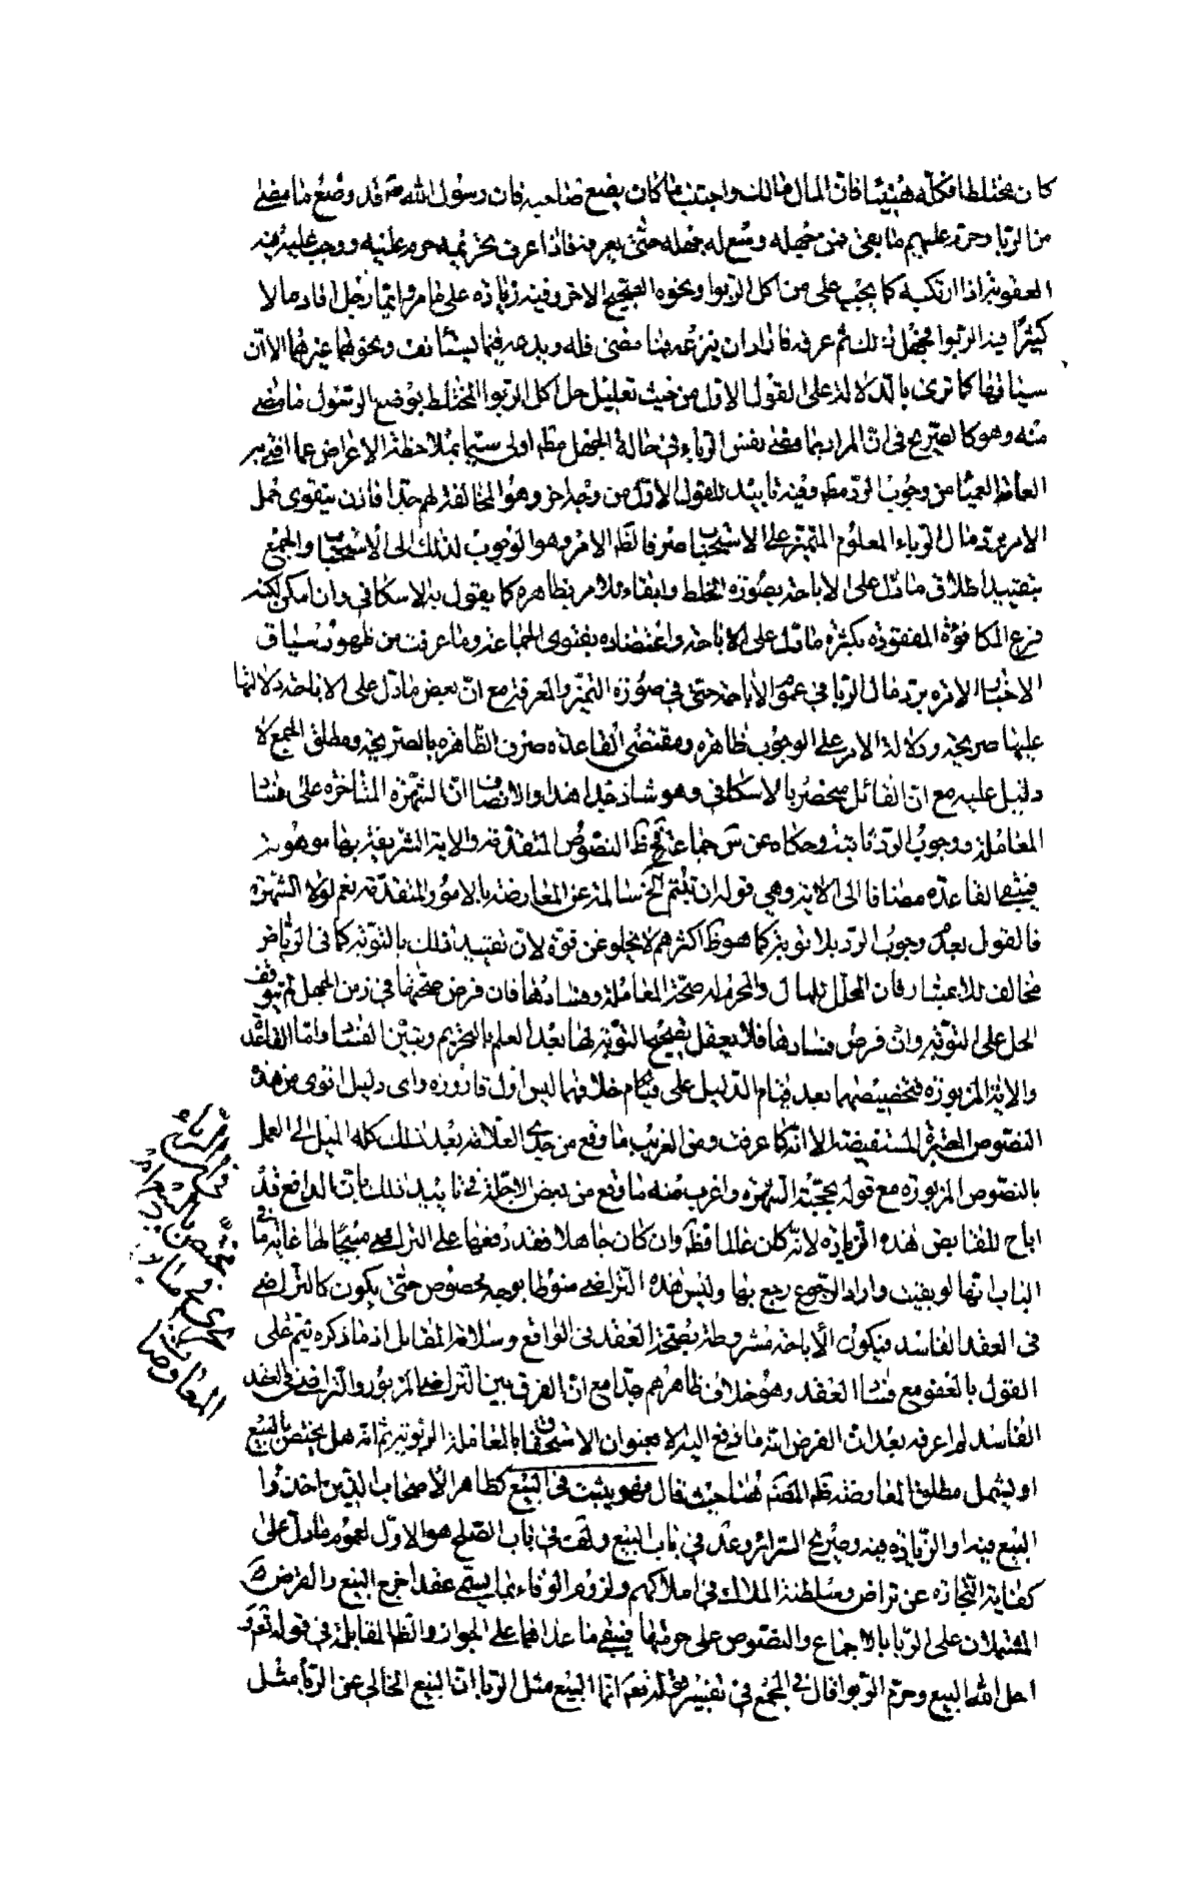 كان مختلطا فكله هنيئا فان المال مالك واجتنب ما كان يصنع صاحبه فان رسول الله ص قد وضع ما مضى
من الربا وحرم عليهم ما بقى فمن جهله وسع له جهله حتى يعرفه فاذا عرف تحريمه حرم عليه ووجب عليه فيه
العقوبة اذا ارتكبه كما يجب على من اكل الربوا ونحوه الصحيح الاخر وفيه زياده على ما مر وايما رجل افاد مالا
كثيرًا فيه الربوا فجهل ذلك ثم عرفه فاراد ان ينزعه فما مضى فله ويدعه فيما يستانف ونحوهما غيرهما الا ان
سياقها كما ترى بالدلالة على القول الاول من حيث تعليل حل اكل الربوا المختلط بوضع الرسول ما مضى
منه وهو كالصريح في ان المراد بما مضى نفس الرباء في حالة الجهل مط اولى سيما بملاحظة الاعراض عما افتى به
العامة العمياء من وجوب الرد مط وفيه تاييد للقول الاول من وجه اخر وهو المخالفة لهم جدا فاذن يتقوى حمل
الامر برد مال الرباء المعلوم المتميز على الاستحباب صرفا لظ الامر وهو الوجوب لذلك الى الاستحباب والجمع
بتقييد اطلاق ما دل على الاباحة بصورة الخلط وابقاء للامر بظاهره كما يقول به الاسكافي وان امكن لكنه
فرع المكافؤة المفقودة بكثرة ما دل على الاباحة واعتضاده بفتوى الجماعة وما عرفت من ظهور سياق
الاخبار الامرة برد مال الربا في عموم الاباحة حتى في صورة التميز والمعرفة مع ان بعض ما دل على الاباحة دلالتها
عليها صريحة ودلالة الامر على الوجوب ظاهرة ومقتضى القاعدة صرف الظاهرة بالصريحة ومطلق الجمع لا
دليل عليه مع ان القائل منحصر بالاسكافي وهو شاذ جدا هذا والانصاف ان الشهرة المتاخرة على فساد
المعاملة ووجوب الرد ثابتة وحكاه عن س جماعة فحظ النصوص المتقدمة والاية الشريفة بها موهونة
فيبقى القاعدة مضافا الى الاية وهي قوله ان تبتم الخ سالمة عن المعارضة بالامور المتقدمة نعم لولا الشهرة
فالقول بعدم وجوب الرد بلا توبة كما هو ظ اكثرهم لا يخلو عن قوة لان تقييد ذلك بالتوبة كما في الرياض
مخالف للاعتبار فان المحلل للمال والمحرم له صحة المعاملة وفسادها فان فرض صحتها في زمن الجهل لم يتوقف
الحل على التوبة وان فرض فسادها فلا يعقل تصحيح التوبة لها بعد العلم بالتحريم وتبين الفساد واما القاعدة
والاية المزبورة فتخصيصهما بعد قيام الدليل على قيام خلافهما ليس اول قارورة واى دليل اقوى من هذه
النصوص المعتبرة المستفيضة الا انه كما عرفت ومن الغريب ما وقع من جدي العلامة بعد ذلك كله الميل الى العمل
بالنصوص المزبورة مع قوله بحجية الشهرة واغرب منه ما وقع من بعض الاجلة في تاييد ذلك بان الدافع قد
اباح للقابض هذه الزيادة لانه كان عالما فظ وان كان جاهلا فقد دفعها على التراضى مبيحا لها غاية ما في
الباب انها لو بقيت واراد الرجوع رجع بها وليس هذه التراضى منوطا بوجه مخصوص حتى يكون كالتراضى
في العقد الفاسد فيكون الاباحة مشروطة بصحة العقد في الواقع وسلامة المقابل اذ ما ذكره يتم على
القول بالعفو مع فساد العقد وهو خلاف ظاهرهم جدا مع ان الفرق بين التراضى المزبور والتراضى في العقد
الفاسد لم اعرفه بعد ان الفرض انه ما دفع اليه الا بعنوان الاستحقاق بالمعاملة الربوية ثم انه هل يختص بالبيع
او يشمل مطلق المعاوضة ظ المصنف هنا حيث قال وهو يثبت في البيع كظاهر الاصحاب الذين اخذوا
البيع فيه او الزيادة فيه وصريح السرائر وعد في باب البيع ولف في باب الصلح هو الاول لعموم ما دل على
كفاية التجارة عن تراض وسلطنة الملاك في املاكهم ولزوم الوفاء بما يسمى عقدا خرج البيع والقرض
المشتملان على الربا بالاجماع والنصوص على حرمتها فيبقى ما عداهما على الجواز والظ المقابلة في قوله تعم و
احل الله البيع وحرم الربوا قال في المجمع في تفسير قوله تعم انما البيع مثل الربا ان البيع الخالي عن الربا مثل